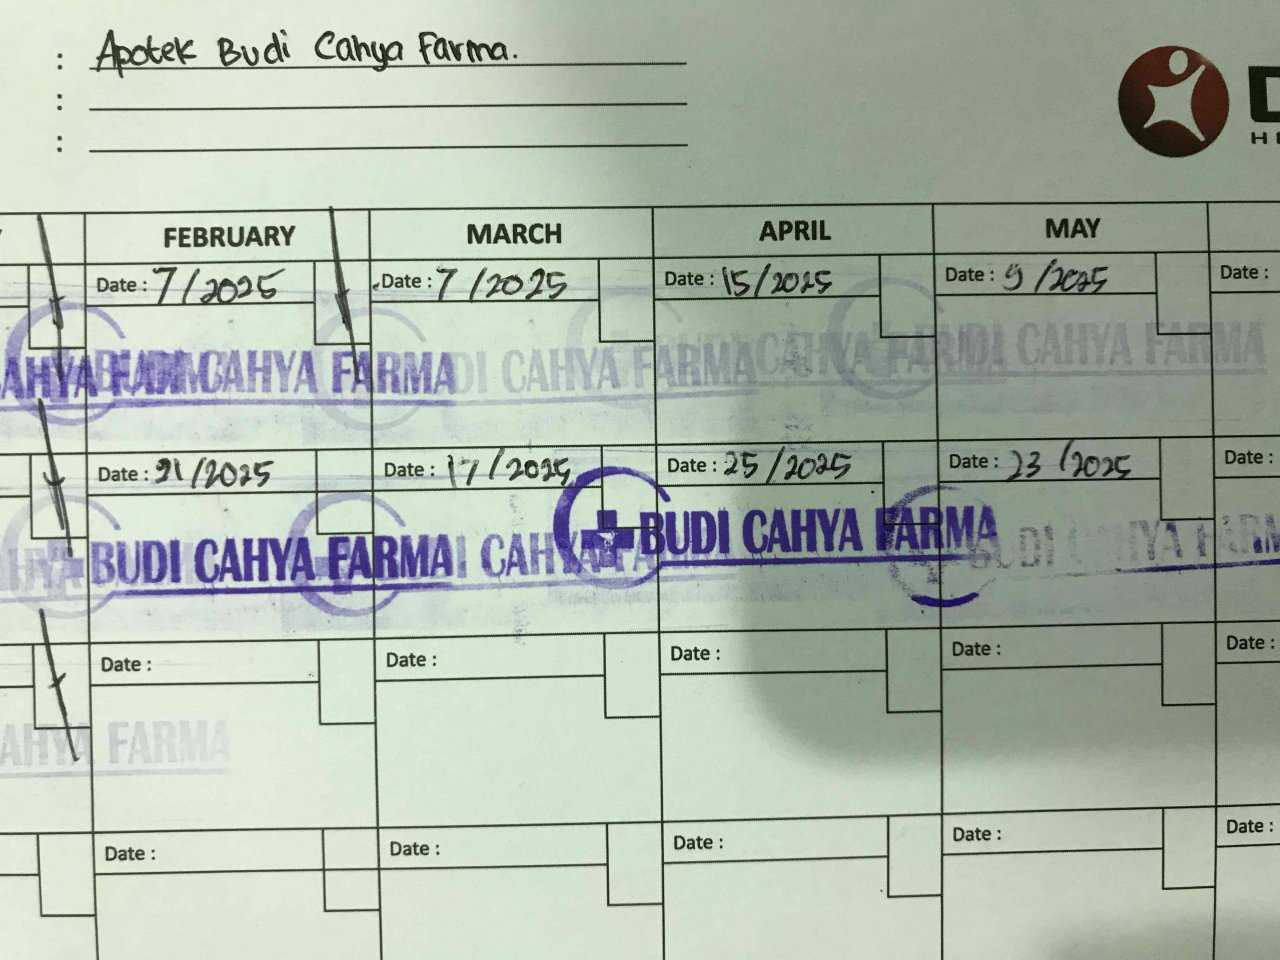 : Apotek Budi Cahya Farma.
:
:
FEBRUARY MARCH APRIL MAY
Date : 7/2025 Date : 7/2025 Date : 15/2025 Date : 9/2025 Date :
CAHYA FARMA BUDI CAHYA FARMA BUDI CAHYA FARMA CAHYA FARMA BUDI CAHYA FARMA
Date : 21/2025 Date : 17/2025 Date : 25/2025 Date : 23/2025 Date :
BUDI CAHYA FARMA CAHYA FARMA BUDI CAHYA FARMA BUDI CAHYA FARM
Date : Date : Date : Date : Date :
CAHYA FARMA
Date : Date : Date : Date : Date :